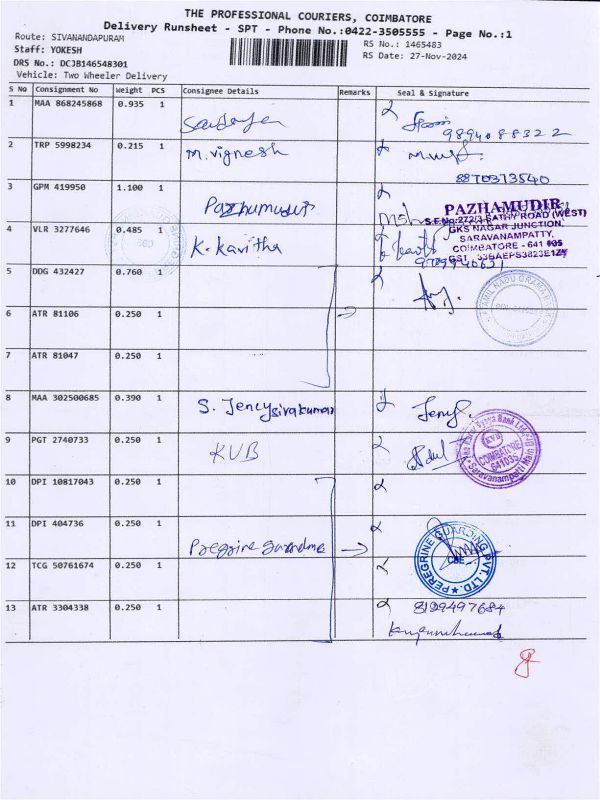 THE PROFESSIONAL COURIERS, COIMBATORE
Delivery Runsheet - SPT - Phone No.:0422-3505555 - Page No.:1
Route: SIVANANDAPURAM
RS No.: 1465483
Staff: YOKESH
RS Date: 27-Nov-2024
DRS No.: DCJB146548301
Vehicle: Two Wheeler Delivery
S No Consignment No Weight PCS Consignee Details Remarks Seal & Signature
1 MAA 868245868 0.935 1
9894088322
2 TRP 5998234 0.215 1 M.vignesh
8870373540
3 GPM 419950 1.100 1 Pazhamudir
PAZHAMUDIR
S.F.No:272/3 SATHY ROAD (WEST)
GKS NAGAR JUNCTION,
SARAVANAMPATTY,
COIMBATORE - 641 035
4 VLR 3277646 0.485 1 K. Kavitha
5 DDG 432427 0.760 1
6 ATR 81106 0.250 1
7 ATR 81047 0.250 1
8 MAA 302500685 0.390 1 S. Jency sivakumar Jency.
9 PGT 2740733 0.250 1 KVB
KVB
COIMBATORE
641035
10 DPI 10817043 0.250 1
11 DPI 404736 0.250 1
PEREGRINE GUARDING PVT. LTD.
CBE
12 TCG 50761674 0.250 1
13 ATR 3304338 0.250 1 8129497684